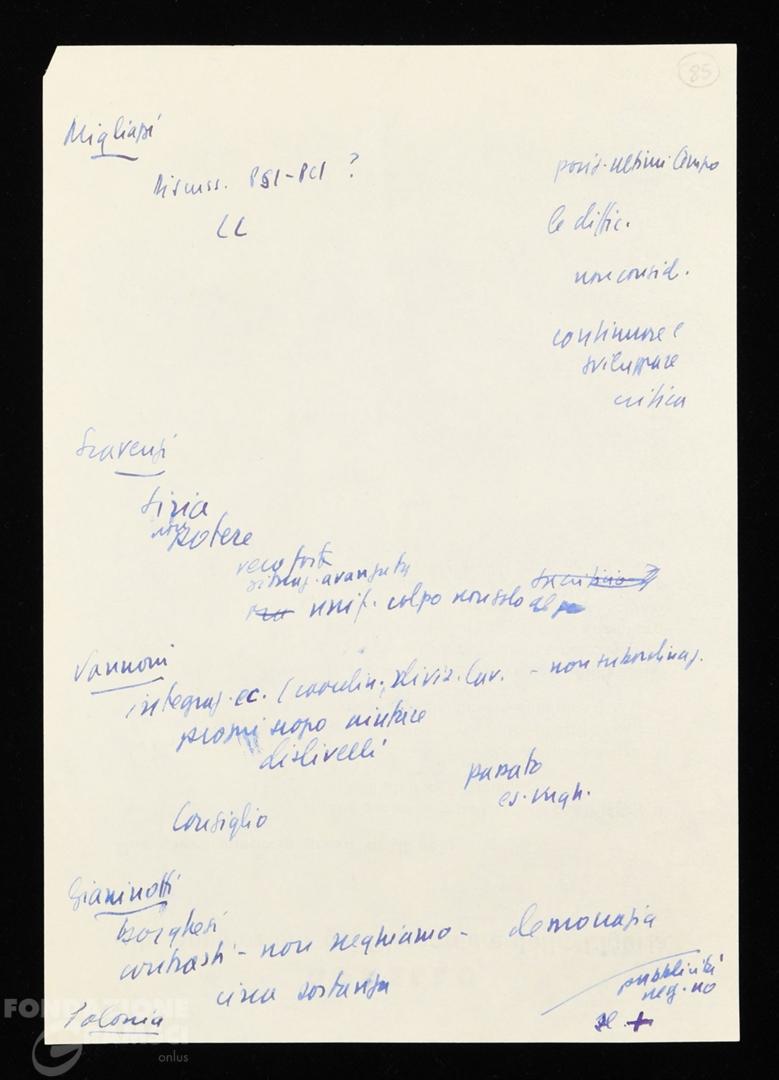 85
Migliasi
Discuss. PSI-PCI ?
LL
posiz. ultimi tempo
le diffic.
non consid.
continuare e
sviluppare
critica
Siria
non potere
situaz. avanzata
unif. colpo non solo
Vannoni
integraz. ec. (coordin., diviz. lav. - non subordinaz.
scopo
dislivelli
passato
es. ungh.
Consiglio
Gianinotti
borghesi
contrasti - non neghiamo - democrazia
circa sostanza
pubblicità
neg. no
Polonia
FONDAZIONE
GRAMSCI
onlus